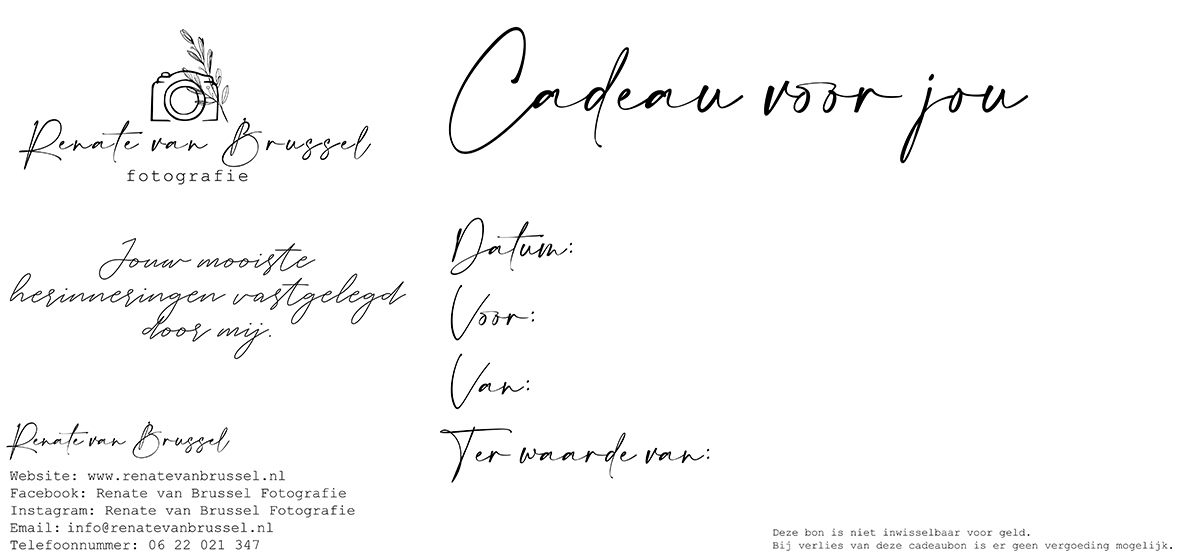 Renate van Brussel
fotografie
Jouw mooiste
herinneringen vastgelegd
door mij.
Renate van Brussel
Website: www.renatevanbrussel.nl
Facebook: Renate van Brussel Fotografie
Instagram: Renate van Brussel Fotografie
Email: info@renatevanbrussel.nl
Telefoonnummer: 06 22 021 347
Cadeau voor jou
Datum:
Voor:
Van:
Ter waarde van:
Deze bon is niet inwisselbaar voor geld.
Bij verlies van deze cadeaubon is er geen vergoeding mogelijk.